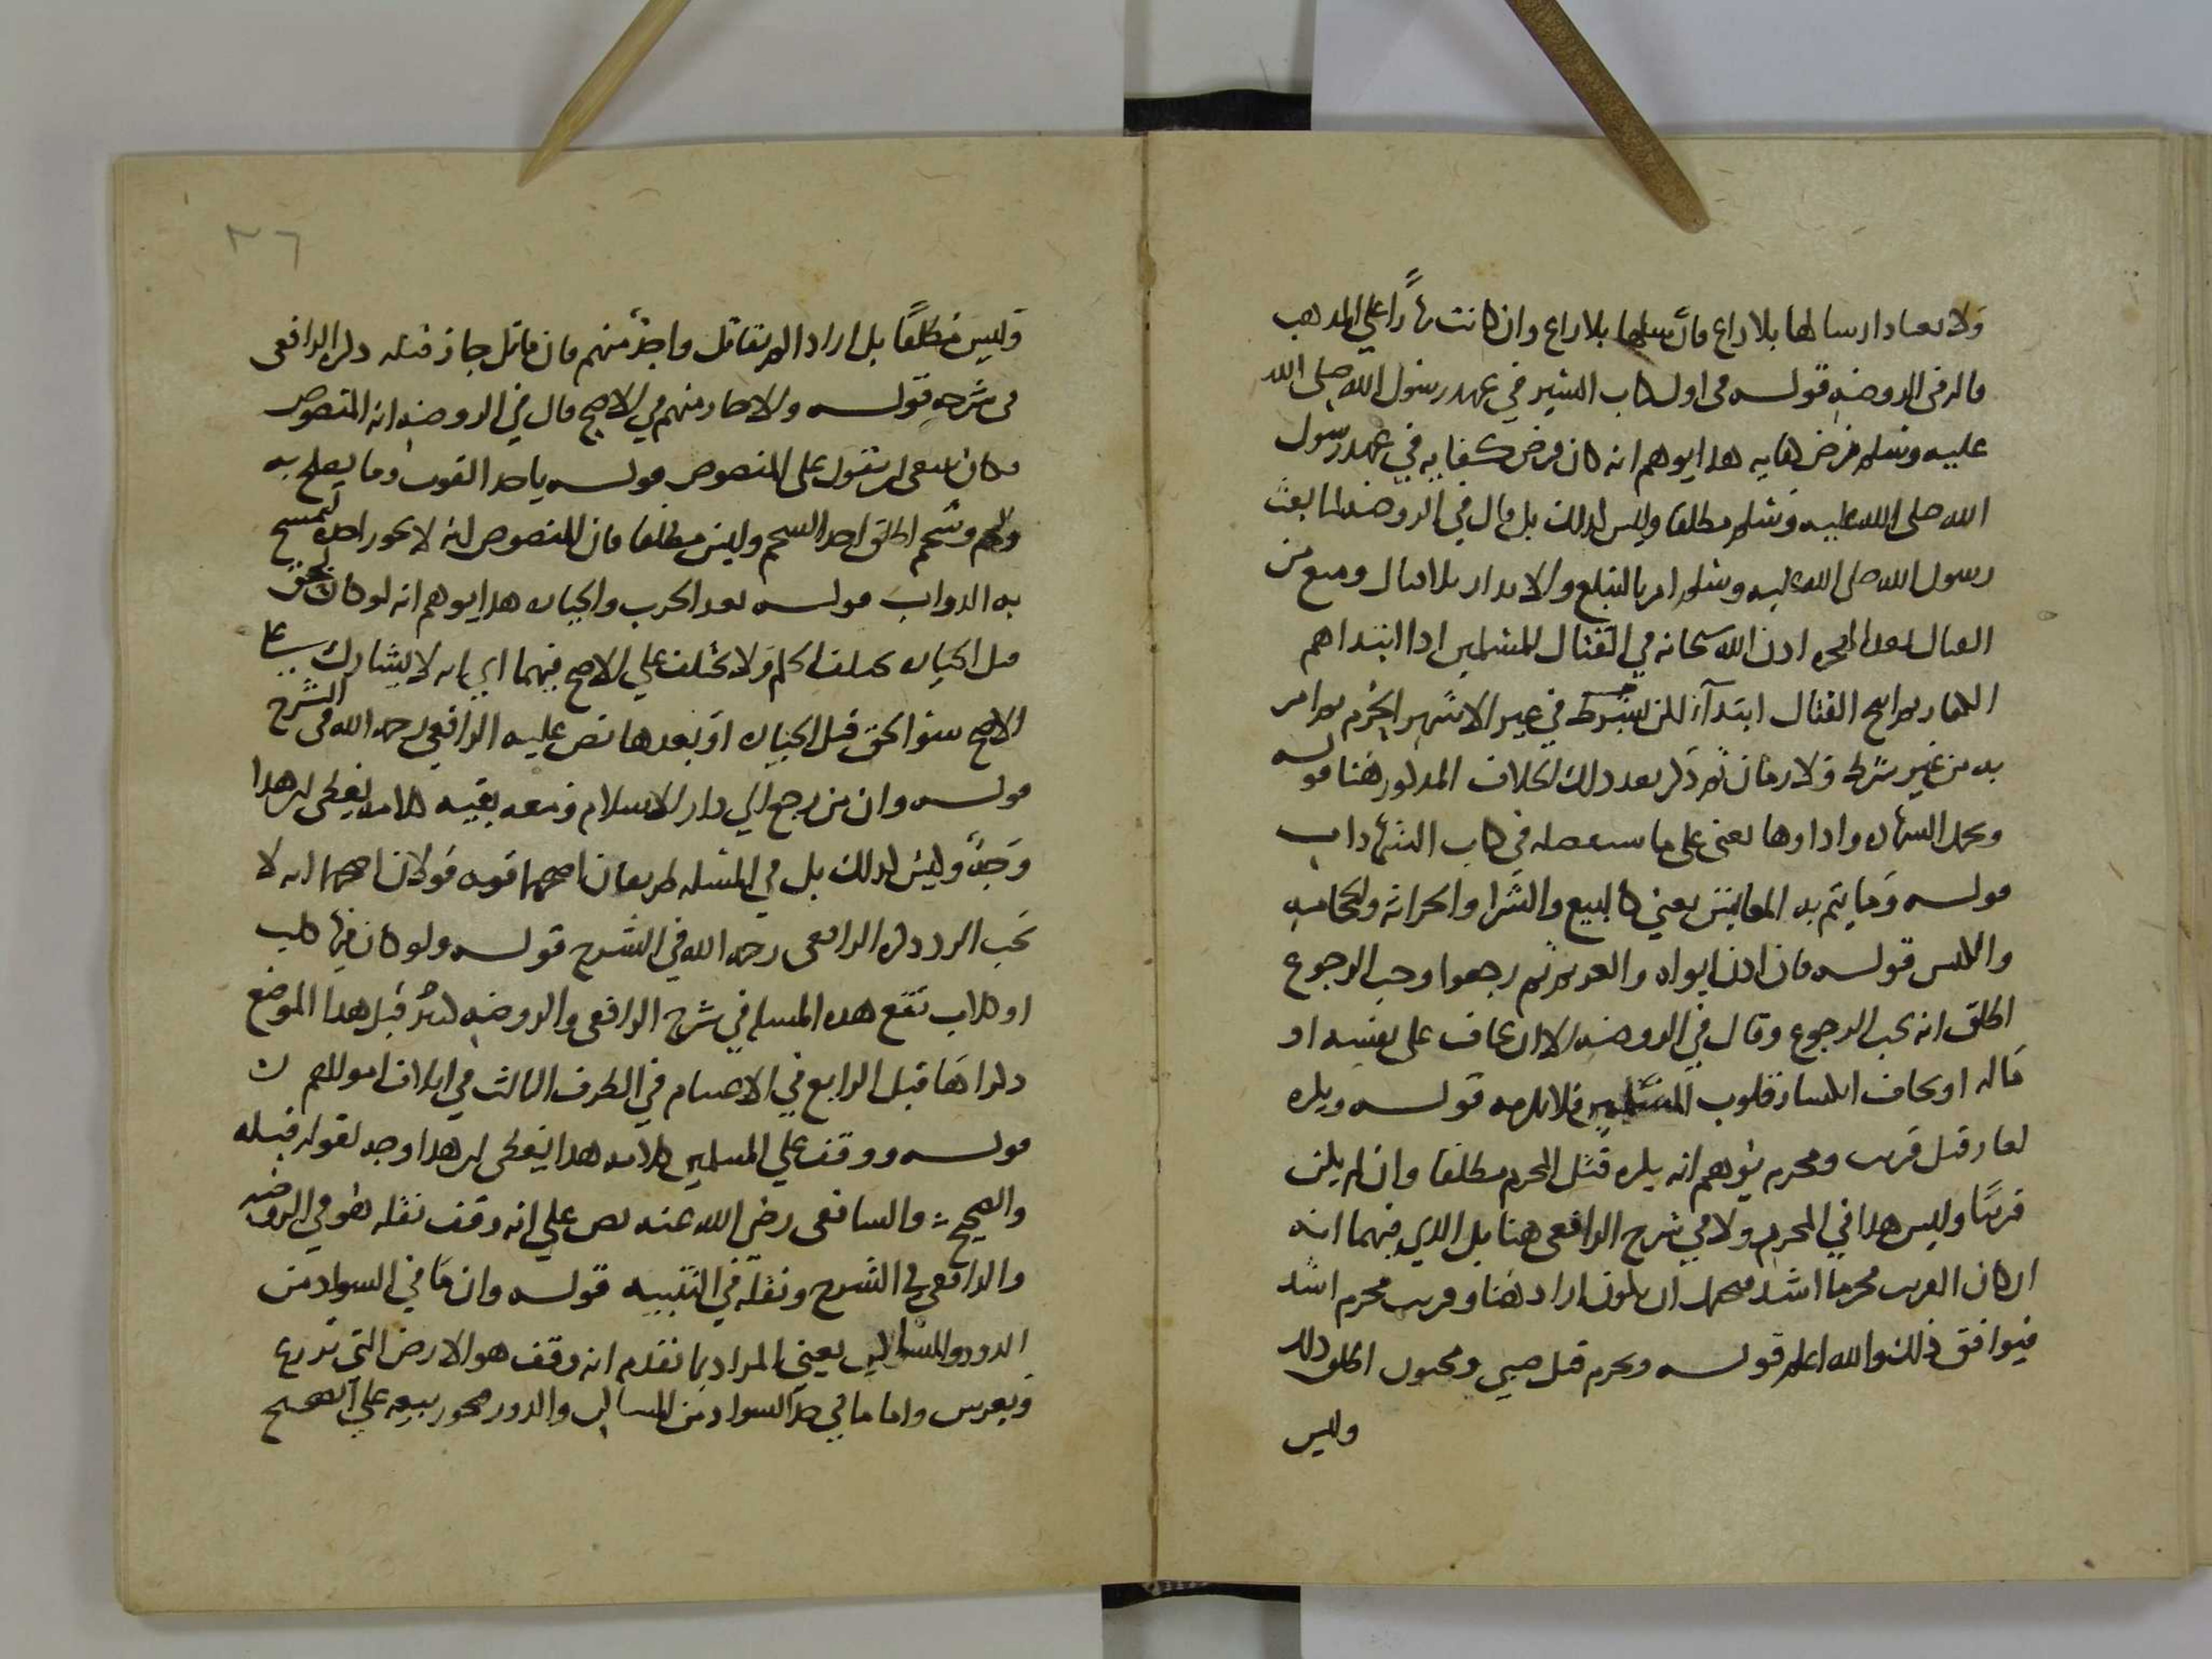 ولا يعتاد ارسالها بلا راع فان ارسلها بلا راع وان كانت نهارًا على المذهب
قاله في الروضه قوله في اول كتاب السير في عهد رسول الله صلى الله
عليه وسلم فرض كفايه هذا يوهم انه كان فرض كفايه في عهد رسول
الله صلى الله عليه وسلم مطلقا وليس كذلك بل قال في الروضه لما بعث
رسول الله صلى الله عليه وسلم امر بالتبليغ والانذار بلا قتال ومنع من
القتال بعد الهجره اذن الله سبحانه في القتال للمسلمين اذا ابتداهم
الكفار ثم ابيح القتال ابتداً لكن بشرط في غير الاشهر الحرم ثم امر
به من غير شرط ولا زمان ثم ذكر بعد ذلك الخلاف المذكور هنا قوله
وتحمل الشهاده واداوها يعني على ما سيفصله في كتاب الشهادات
قوله وما يتم به المعايش يعني كالبيع والشرا والحراثه والحجامه
والكنس قوله فان اذن ابواه والغريم ثم رجعوا وجب الرجوع
اطلق انه يجب الرجوع وقال في الروضه الا ان يخاف على نفسه او
ماله او يخاف انكسار قلوب المسلمين فلا يلزمه قوله ويكره
لغاز قتل قريب ومحرم يوهم انه يكره قتل المحرم مطلقا وان لم يكن
قريبًا وليس هذا في المحرر ولا في شرح الرافعي هنا بل الذي فيهما انه
ان كان القريب محرما اشد فيحتمل ان يكون اراد هنا وقريب محرم اشد
فيوافق ذلك والله اعلم قوله ويحرم قتل صبي ومجنون اطلق ذلك
وليس
٣٦
وليس مطلقًا بل اراد اذا لم يقاتل واحدٌ منهم فان قاتل جاز قتله ذكره الرافعي
في شرحه قوله والاحاد منهم في الاصح قال في الروضه انه المنصوص
فكان ينبغي ان يقول على المنصوص قوله باخذ القوت وما يصلح به
ولحم وشحم اطلق اخذ الشحم وليس مطلقا فان المنصوص انه لا يجوز اخذه ليمسح
به الدواب قوله بعد الحرب والحيازه هذا يوهم انه لو كان لحق
قبل الحيازه يختلف الحكم ولا يختلف على الاصح فيهما اي انه لا يشارك على
الاصح سوا لحق قبل الحيازه او بعدها نص عليه الرافعي رحمه الله في الشرح
قوله وان من رجع الى دار الاسلام ومعه بقيه كلامه يعطي ان هذا
وجهٌ وليس كذلك بل في المسئله طريقان اصحهما قوله قولان اصحهما انه لا
يجب الرد ذكره الرافعي رحمه الله في الشرح قوله ولو كان فيها كلب
او كلاب تنفع هذه المسله في شرح الرافعي والروضه ليست قبل هذا الموضع
ذكراها قبل الرابع في الاغتنام في الطرف الثالث في اتلاف اموالهم
قوله ووقف على المسلمين كلامه هذا يعطي ان هذا وجه لقوله قبله
والصحيح والشافعي رضي الله عنه نص على انه وقف نقله هو في الروضه
والرافعي في الشرح ونقله في التنبيه قوله وان ما في السواد من
الدور والمساكن يعني المراد بما تقدم انه وقف هو الارض التي تزرع
وتغرس واما ما في حد السواد من المساكن والدور فيجوز بيعه على الصحيح